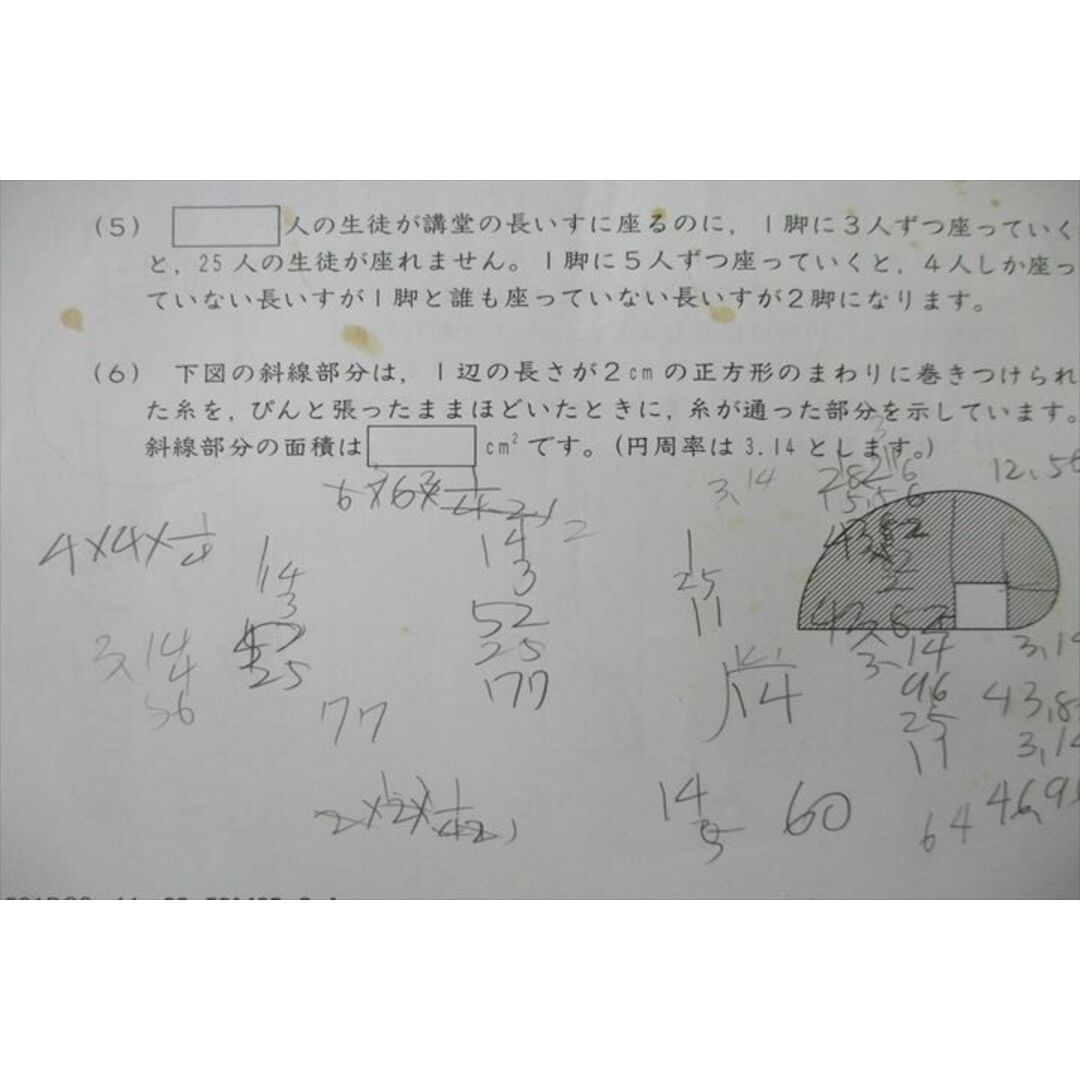 (5) 人の生徒が講堂の長いすに座るのに，1脚に3人ずつ座っていく
と，25人の生徒が座れません。1脚に5人ずつ座っていくと，4人しか座っ
ていない長いすが1脚と誰も座っていない長いすが2脚になります。
(6) 下図の斜線部分は，1辺の長さが2cmの正方形のまわりに巻きつけられ
た糸を，ぴんと張ったままほどいたときに，糸が通った部分を示しています。
斜線部分の面積は cm²です。(円周率は3.14とします。)
3.14
12.56
4×4×1/4
14
3
14
3
52
25
177
1
25
11
3.14
4
56
25
77
14
3.14
96
25
11
43.8
3.14
14
60
64
46.9